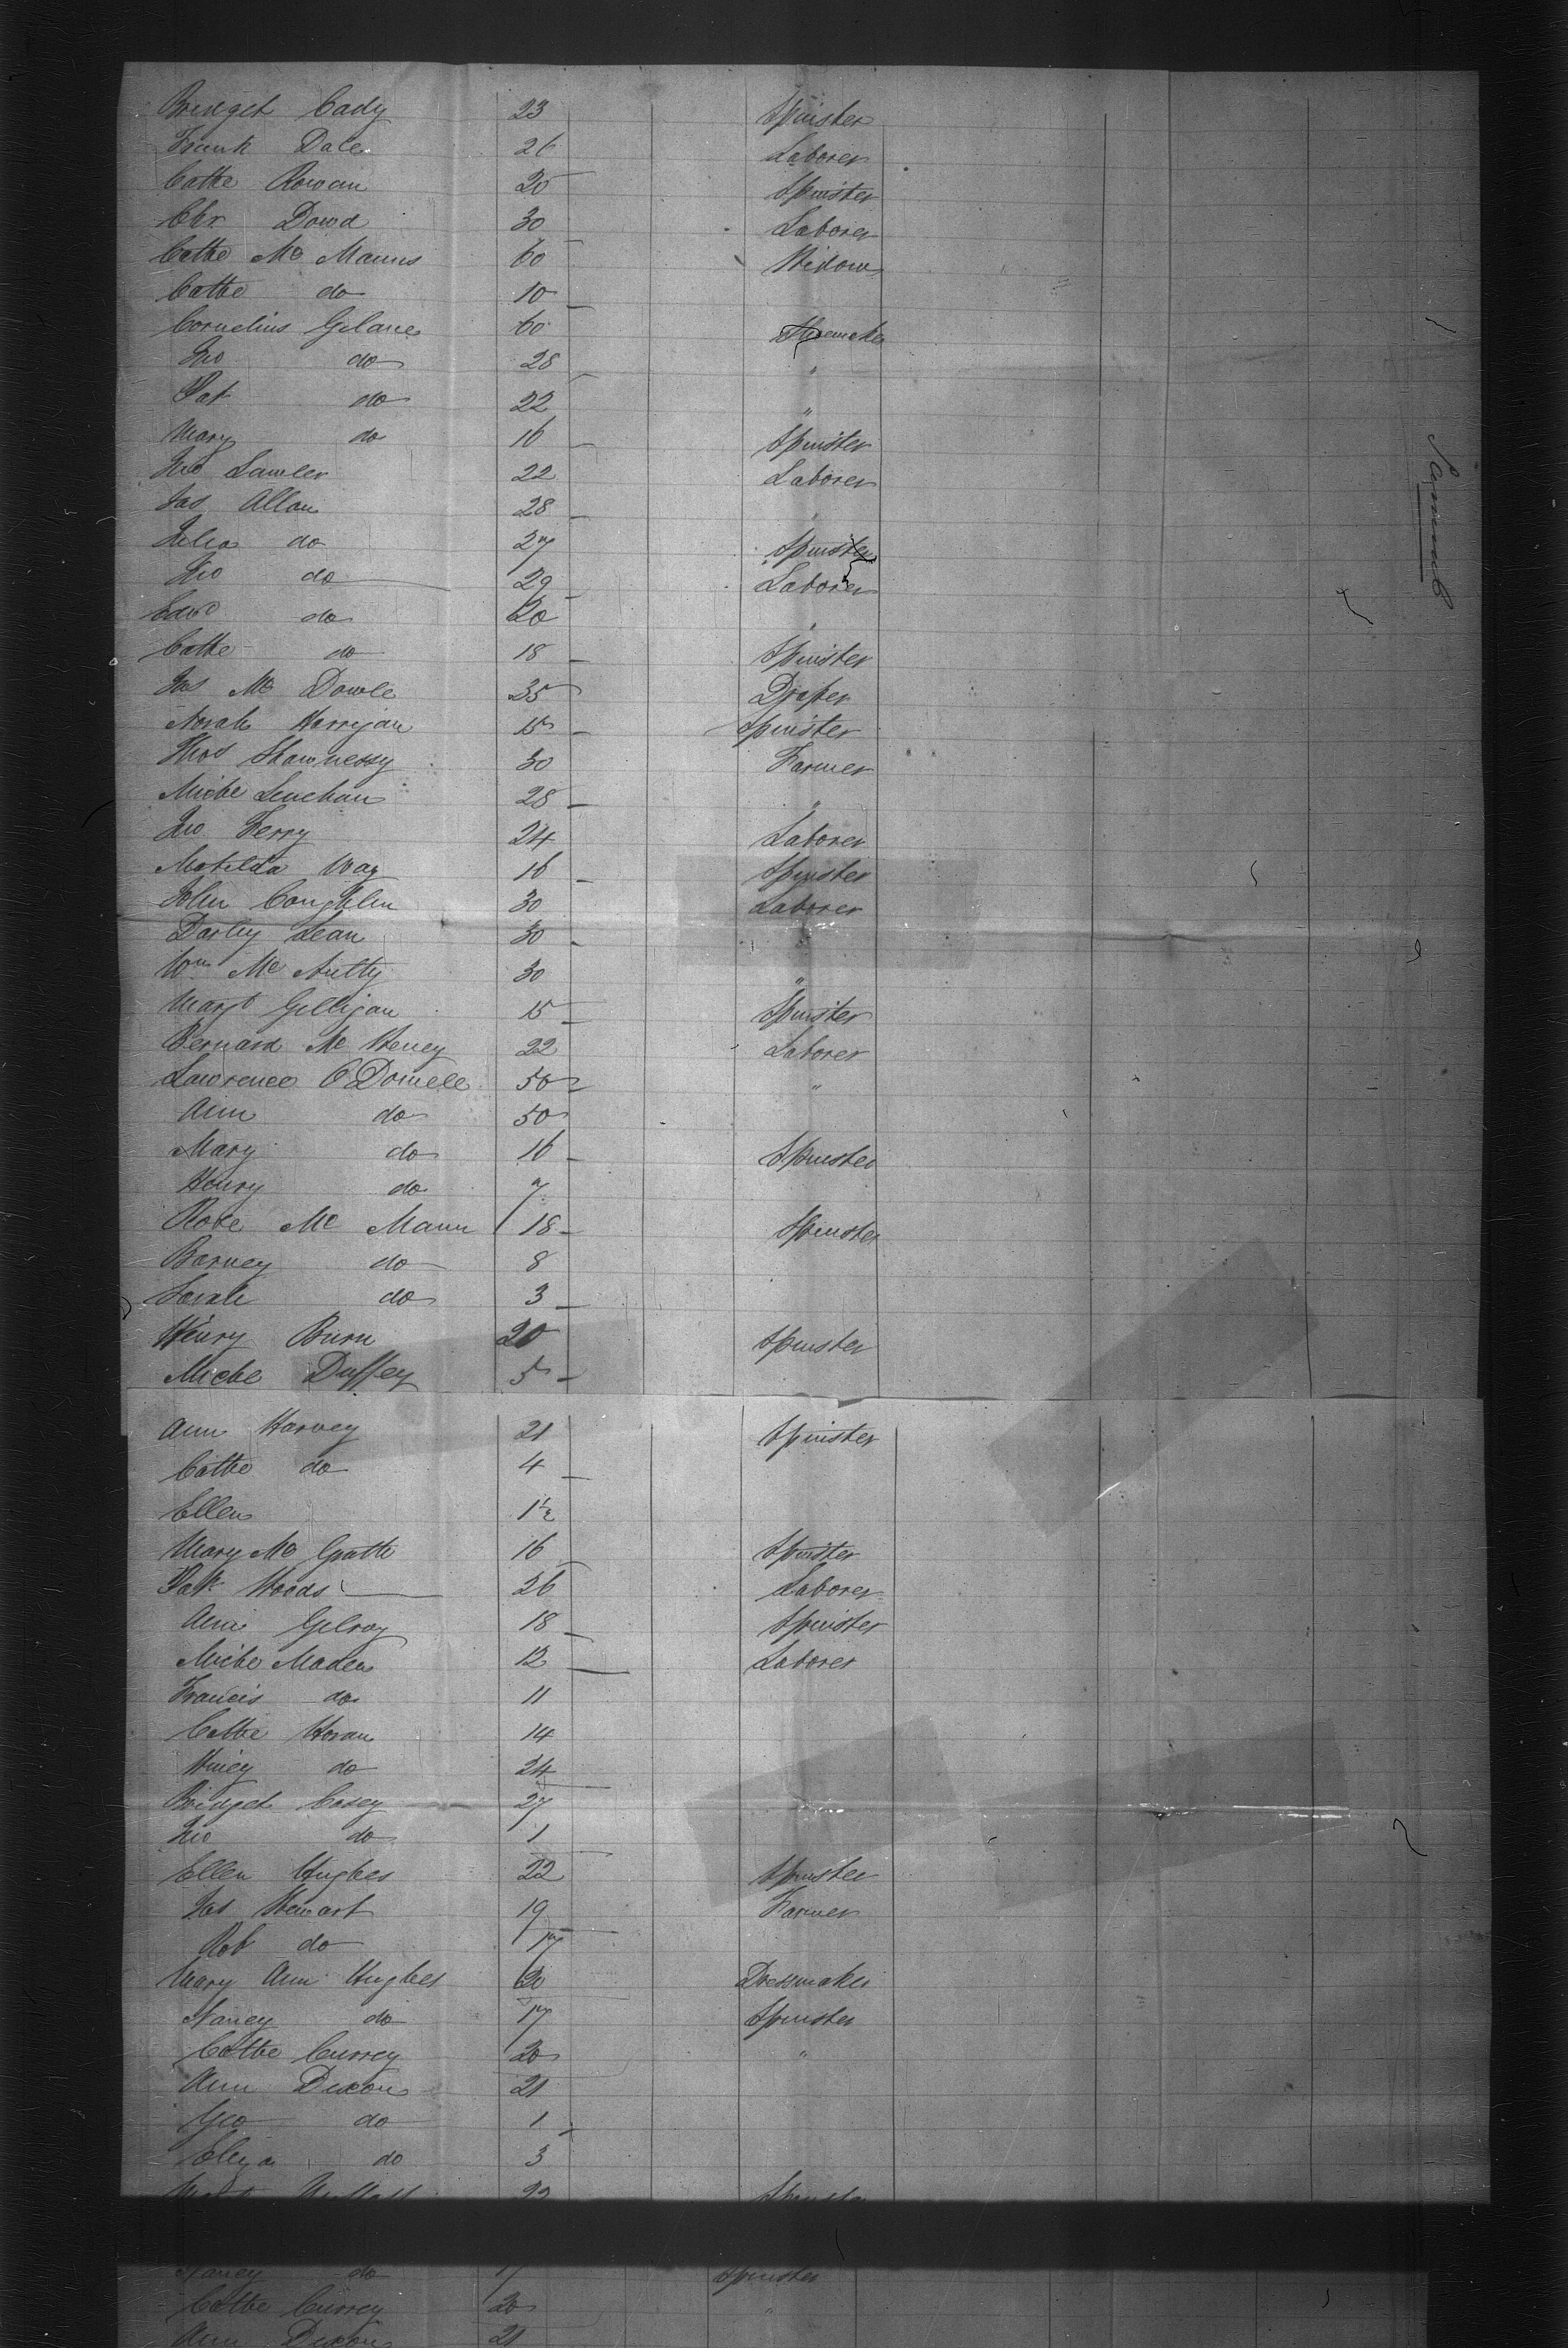 Bridget Cady 23 Spinster
Frank Dale 26 Laborer
Cathe Rowan 20 Spinster
Chr Dowd 30 Laborer
Cathe Mc Manus 60 Widow
Cathe do 10
Cornelius Gilane 60 Shoemaker
Jno do 28 "
Pat do 22 "
Mary do 16 Spinster
Jno Lawler 22 Laborer
Jas Allan 28 "
Julia do 27 Spinster
Jno do 29 Laborer
Edwd do 20 "
Cathe do 18 Spinster
Jas Mc Dowle 35 Draper
Norah Harrigan 15 Spinster
Thos Shawnessy 30 Farmer
Miche Lenehan 28 "
Jno Ferry 24 Laborer
Matilda Way 16 Spinster
John Coughlin 30 Laborer
Darley Lean 30 "
Wm Mc Nulty 30 "
Margt Gilligan 15 Spinster
Bernard Mc Heney 22 Laborer
Lawrence O'Donnell 50 "
Ann do 50
Mary do 16 Spinster
Henry do 7
Rose Mc Mann 18 Spinster
Barney do 8
Sarah do 3
Henry Burn 20 Spinster
Miche Duffey 5
Ann Harvey 21 Spinster
Cathe do 4
Ellen 1½
Mary Mc Grath 16 Spinster
Patk Woods 26 Laborer
Ann Gilroy 18 Spinster
Miche Maden 12 Laborer
Francis do 11
Cathe Horan 14
do 24
Bridget Casey 27
Jno do 1
Ellen Hughes 22 Spinster
Jas Stewart 19 Farmer
Rob do 17
Mary Ann Hughes 20 Dressmaker
Nancy do 17 Spinster
Cathe Currey 20 "
Ann Dixon 21
Geo do 1
Eliza do 3
22 Spinster
Nancy do 17 Spinster
Cathe Currey 20 "
Ann Dixon 21